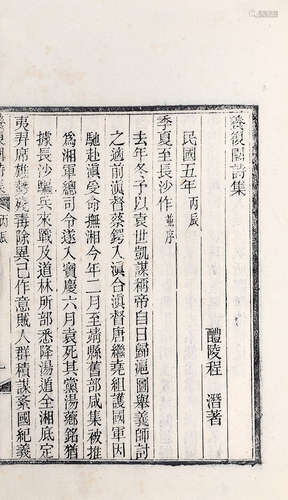 養復園詩集
醴陵程 潛著
民國五年 丙辰
季夏至長沙作 並序
去年冬予以袁世凱謀稱帝自日歸滬圖舉義師討
之適前滇督蔡鍔入滇合滇督唐繼堯組護國軍因
馳赴滇受命撫湘今年二月至靖縣舊部咸集被推
為湘軍總司令遂入寶慶六月袁死其黨湯薌銘猶
據長沙驅兵來戰及道林所部悉降湯遁全湘底定
夷羿席毒除異己作意賊人群積謀紊國紀義